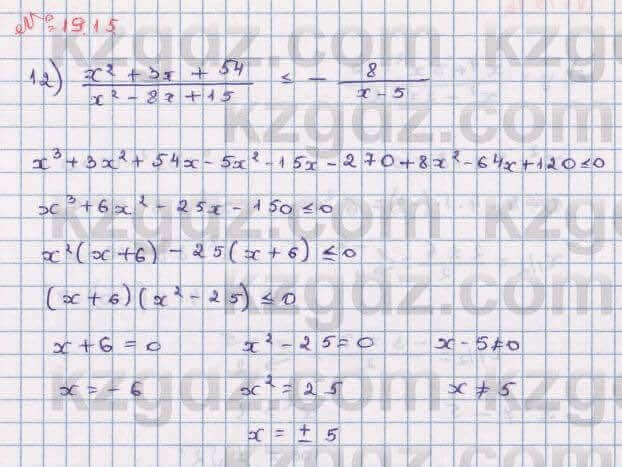 № 19.15
12) (x² + 3x + 54)/(x² - 8x + 15) ≤ - 8/(x - 5)
x³ + 3x² + 54x - 5x² - 15x - 270 + 8x² - 64x + 120 ≤ 0
x³ + 6x² - 25x - 150 ≤ 0
x²(x + 6) - 25(x + 6) ≤ 0
(x + 6)(x² - 25) ≤ 0
x + 6 = 0 x² - 25 = 0 x - 5 ≠ 0
x = - 6 x² = 25 x ≠ 5
x = ± 5
kzgdz.com